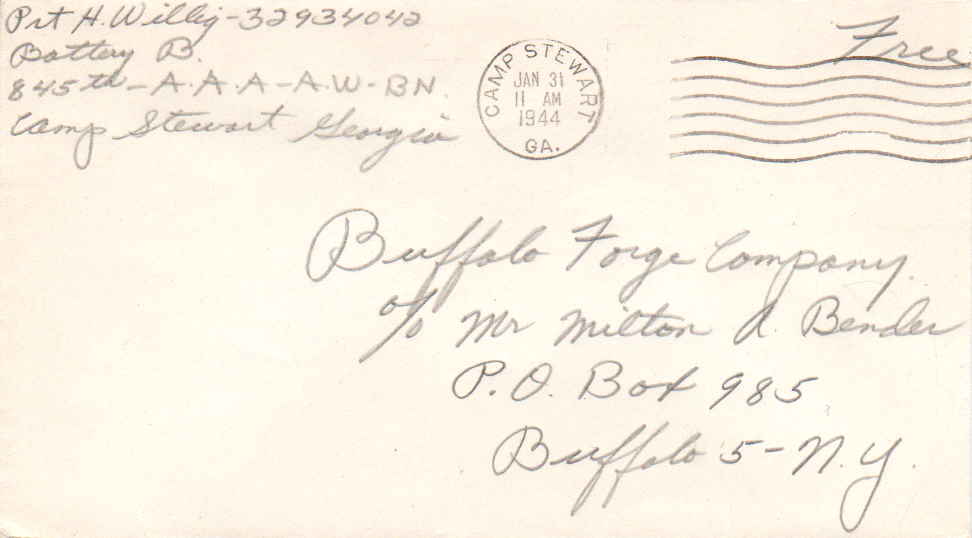 Pvt H. Willig - 32934042
Battery B.
845th - A.A.A - A.W. - BN.
Camp Stewart Georgia
CAMP STEWART
JAN 31
11 AM
1944
GA.
Free
Buffalo Forge Company.
c/o Mr Milton A. Bender
P.O. Box 985
Buffalo 5 - N.Y.